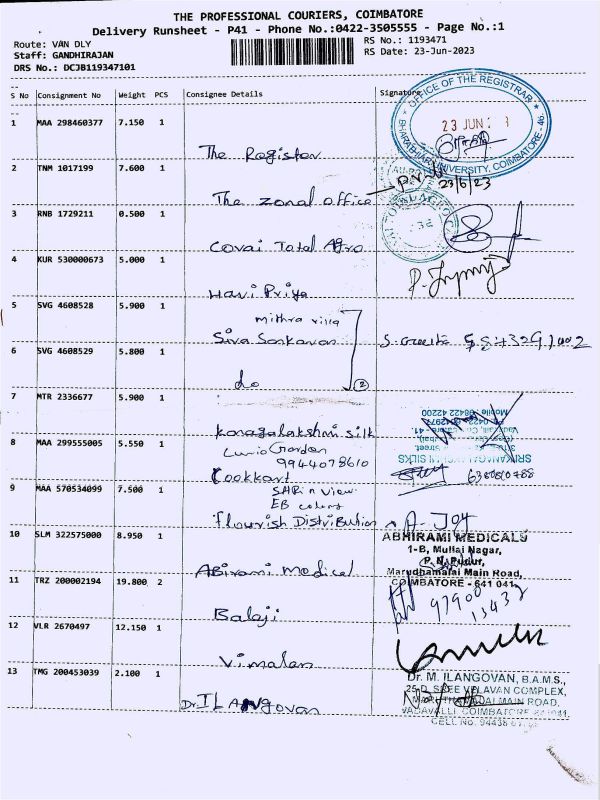 THE PROFESSIONAL COURIERS, COIMBATORE
Delivery Runsheet - P41 - Phone No.:0422-3505555 - Page No.:1
Route: VAN DLY
Staff: GANDHIRAJAN
DRS No.: DCJB119347101
RS No.: 1193471
RS Date: 23-Jun-2023
S No Consignment No Weight PCS Consignee Details Signature
OFFICE OF THE REGISTRAR
BHARATHIAR UNIVERSITY, COIMBATORE - 46.
23 JUN
1 MAA 298460377 7.150 1
The Register
2 TNM 1017199 7.600 1
23/6/23
The zonal office
3 RNB 1729211 0.500 1
Covai Total Agro
4 KUR 530000673 5.000 1
Hari Priya
5 SVG 4608528 5.900 1
mithra villa
Siva Sankaran
6 SVG 4608529 5.800 1
do
2
7 MTR 2336677 5.900 1
Kanagalakshmi silk
8 MAA 299555005 5.550 1
Garden
9944078610
Cookkart
SRI KANAGALAKSHMI SILKS
6380810788
9 MAA 570534099 7.500 1
View
EB colony
Flourish Distribution
A. Joy
10 SLM 322575000 8.950 1
Abirami medical
ABHIRAMI MEDICALS
1-B, Mullai Nagar,
P. N. Pudur,
Marudhamalai Main Road,
COIMBATORE - 641 041
11 TRZ 200002194 19.800 2
97900
13432
Balaji
12 VLR 2670497 12.150 1
Vimalan
13 TMG 200453039 2.100 1
Dr. ILANgovan
Dr. M. ILANGOVAN, B.A.M.S.,
25-D, SREE VELAVAN COMPLEX,
MARUTHAMALAI MAIN ROAD,
VADAVALLI, COIMBATORE 641041.
CELL NO. 94438